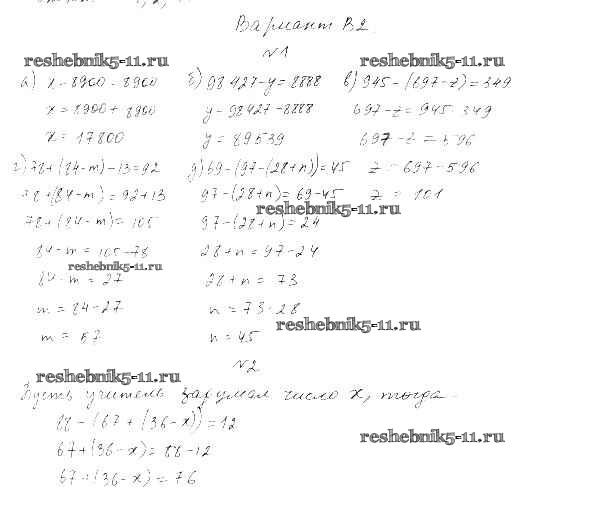 Вариант В2.
№1
reshebnik5-11.ru reshebnik5-11.ru
а) x - 8900 = 8900 б) 98 427 - y = 8888 в) 945 - (697 - z) = 349
x = 8900 + 8900 y = 98427 - 8888 697 - z = 945 - 349
x = 17800 y = 89539 697 - z = 596
г) 78 + (84 - m) - 13 = 92 д) 69 - (97 - (28 + n)) = 45 z = 697 - 596
78 + (84 - m) = 92 + 13 97 - (28 + n) = 69 - 45 z = 101
reshebnik5-11.ru
78 + (84 - m) = 105 97 - (28 + n) = 24
84 - m = 105 - 78 28 + n = 97 - 24
reshebnik5-11.ru
84 - m = 27 28 + n = 73
m = 84 - 27 n = 73 - 28
reshebnik5-11.ru
m = 57 n = 45
№2
reshebnik5-11.ru
Пусть учитель задумал число x, тогда
88 - (67 + (36 - x)) = 12
reshebnik5-11.ru
67 + (36 - x) = 88 - 12
67 + (36 - x) = 76